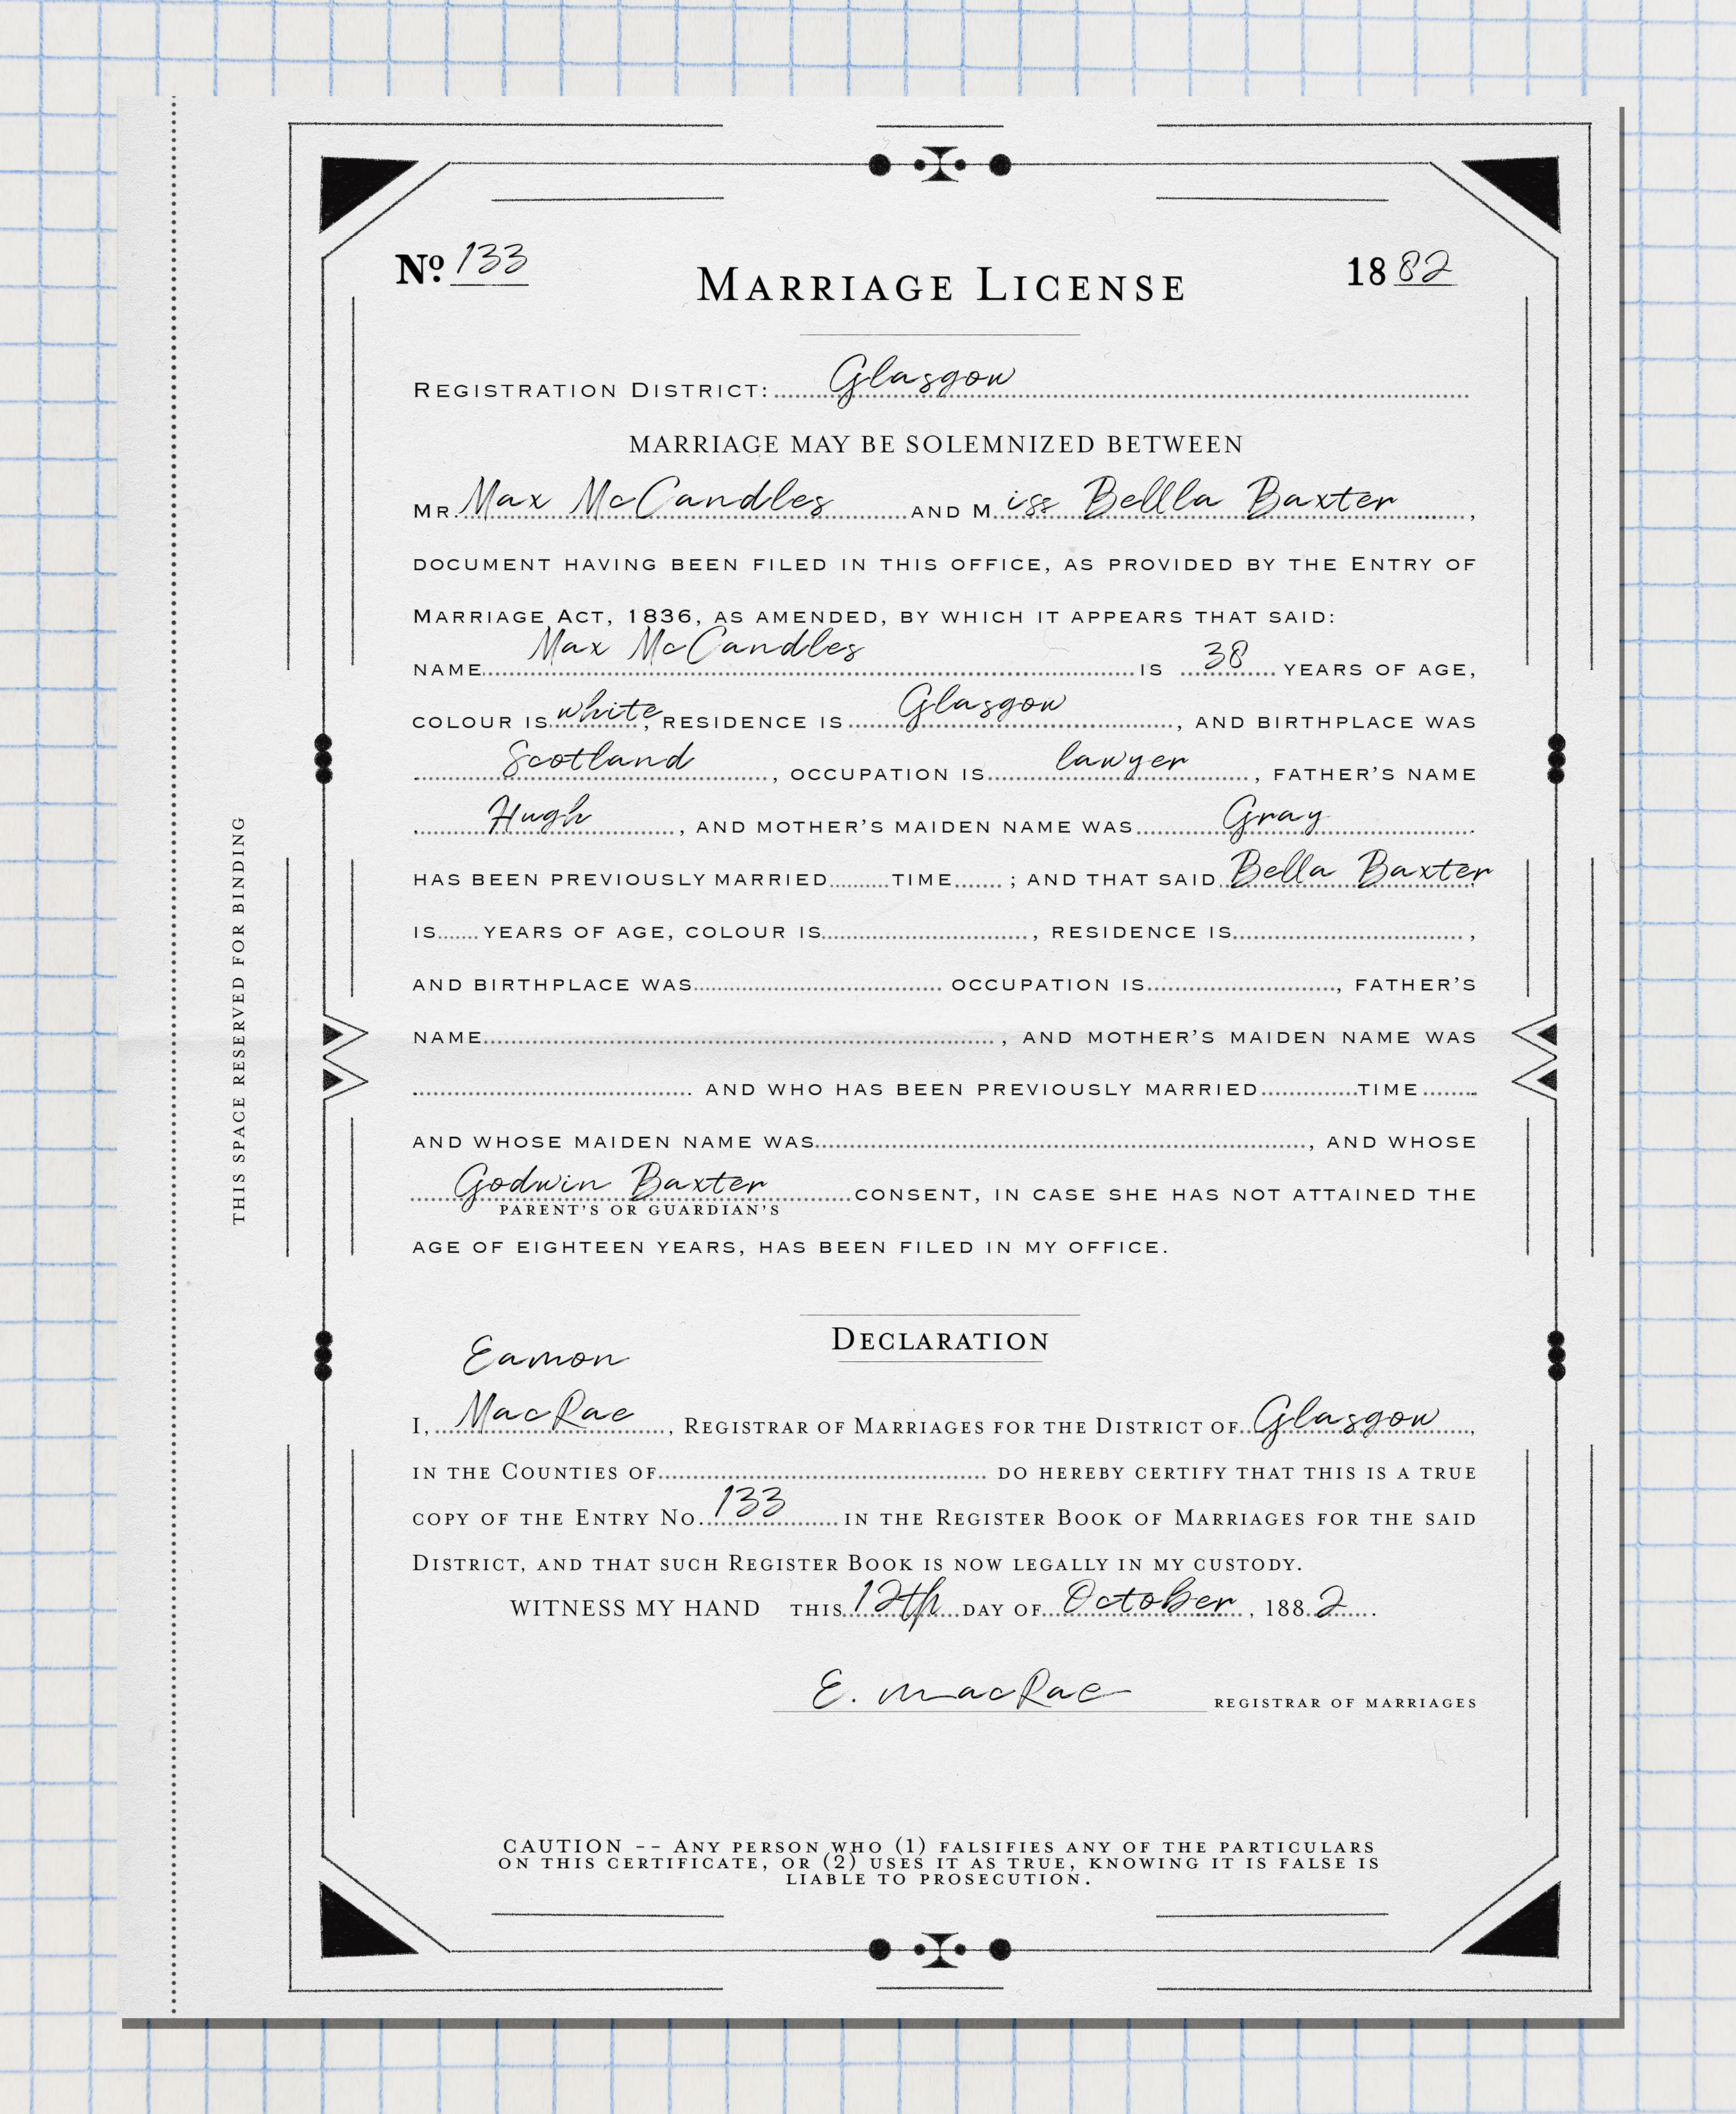 Nº 133
1882
MARRIAGE LICENSE
REGISTRATION DISTRICT: Glasgow
MARRIAGE MAY BE SOLEMNIZED BETWEEN
MR. Max McCandles AND Miss Bellla Baxter,
DOCUMENT HAVING BEEN FILED IN THIS OFFICE, AS PROVIDED BY THE ENTRY OF
MARRIAGE ACT, 1836, AS AMENDED, BY WHICH IT APPEARS THAT SAID:
NAME Max McCandles IS 38 YEARS OF AGE,
COLOUR IS white, RESIDENCE IS Glasgow, AND BIRTHPLACE WAS
Scotland, OCCUPATION IS lawyer, FATHER'S NAME
Hugh, AND MOTHER'S MAIDEN NAME WAS Gray
HAS BEEN PREVIOUSLY MARRIED......TIME......; AND THAT SAID Bella Baxter,
IS...... YEARS OF AGE, COLOUR IS......, RESIDENCE IS......,
AND BIRTHPLACE WAS...... OCCUPATION IS......, FATHER'S
NAME......, AND MOTHER'S MAIDEN NAME WAS
....... AND WHO HAS BEEN PREVIOUSLY MARRIED......TIME......
AND WHOSE MAIDEN NAME WAS......, AND WHOSE
Godwin Baxter CONSENT, IN CASE SHE HAS NOT ATTAINED THE
PARENT'S OR GUARDIAN'S
AGE OF EIGHTEEN YEARS, HAS BEEN FILED IN MY OFFICE.
DECLARATION
Eamon
I, MacRae, REGISTRAR OF MARRIAGES FOR THE DISTRICT OF Glasgow,
IN THE COUNTIES OF...... DO HEREBY CERTIFY THAT THIS IS A TRUE
COPY OF THE ENTRY NO. 133 IN THE REGISTER BOOK OF MARRIAGES FOR THE SAID
DISTRICT, AND THAT SUCH REGISTER BOOK IS NOW LEGALLY IN MY CUSTODY.
WITNESS MY HAND THIS 12th DAY OF October, 1882.
E. MacRae REGISTRAR OF MARRIAGES
CAUTION -- ANY PERSON WHO (1) FALSIFIES ANY OF THE PARTICULARS
ON THIS CERTIFICATE, OR (2) USES IT AS TRUE, KNOWING IT IS FALSE IS
LIABLE TO PROSECUTION.
THIS SPACE RESERVED FOR BINDING